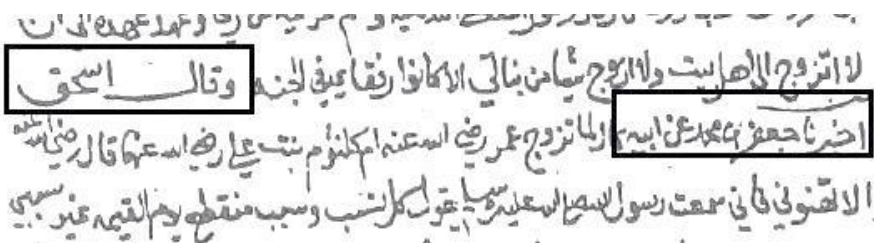 لا اتزوج الى اهل بيت ولا ازوج شيئا من بناتي الا كانوا رفقايي في الجنه وقال اسحق
اخبرنا جعفر بن محمد عن ابيه لما تزوج عمر رضي الله عنه ام كلثوم بنت علي رضي الله عنها قال رضي الله عنه
الا تهنوني فاني سمعت رسول الله صلى الله عليه وسلم يقول كل نسب وسبب منقطع يوم القيمه غير سببي